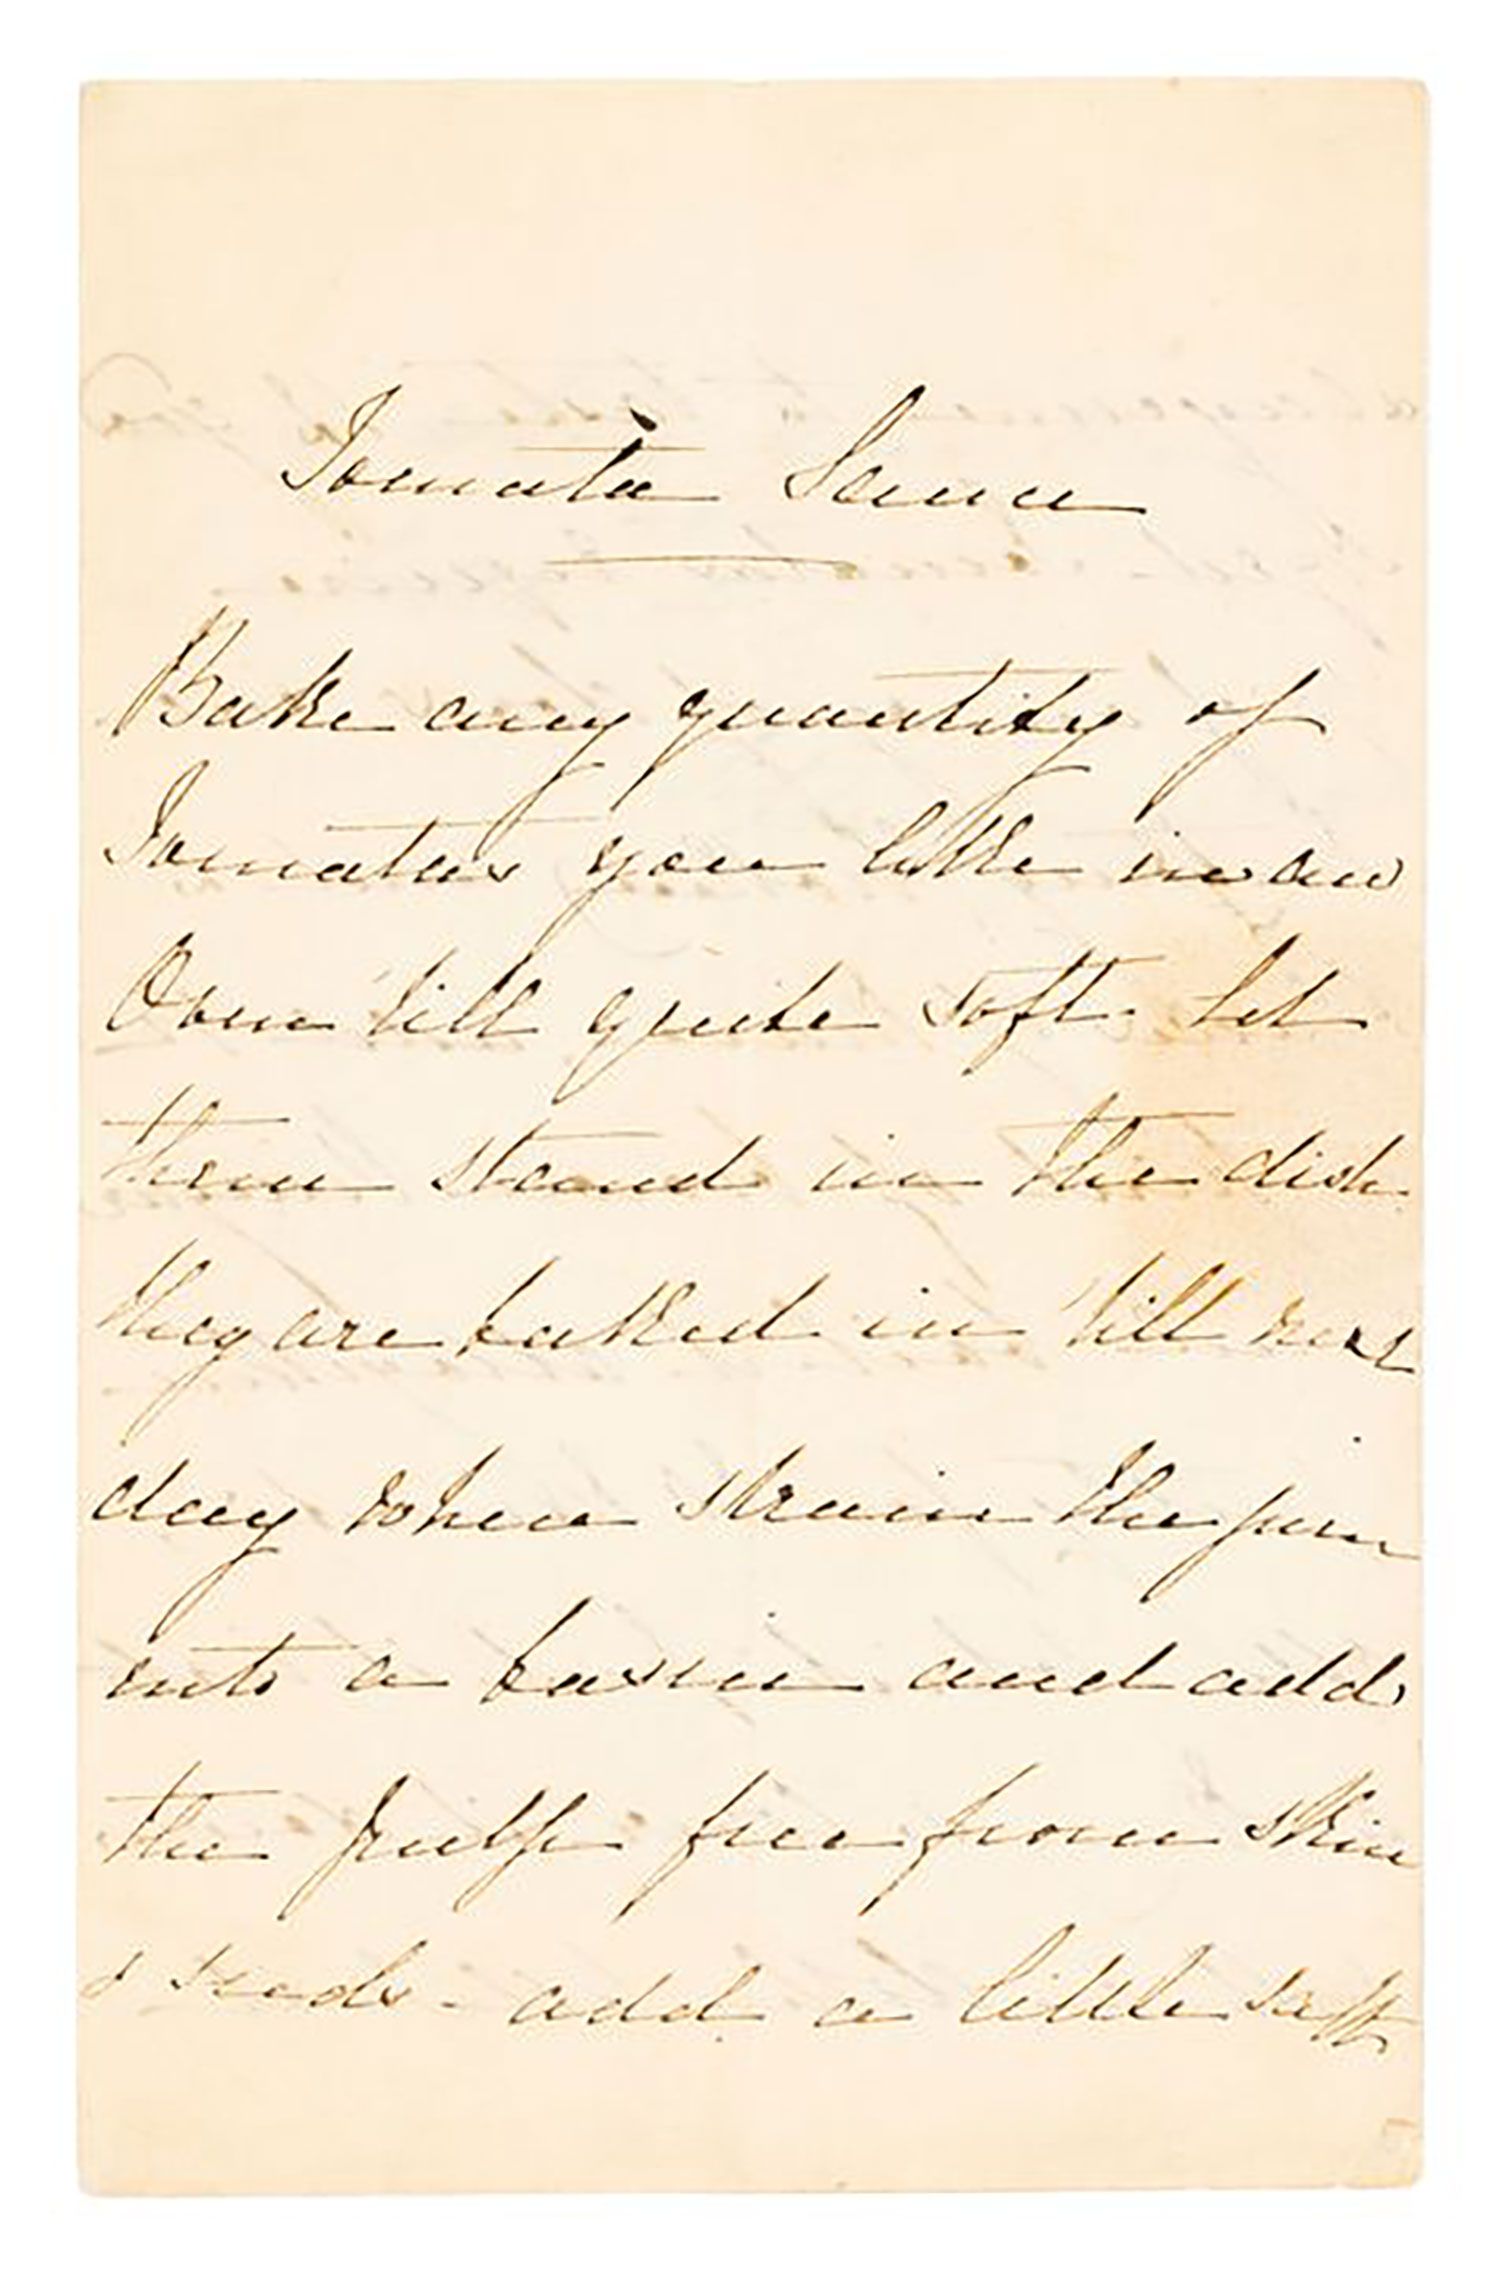 Tomata Sauce
Bake any quantity of
Tomatas you like in an
Oven till quite soft. let
them stand in the dish
they are baked in till next
day when strain the juice
into a basin and add
the pulp free from skin
& seeds - add a little salt